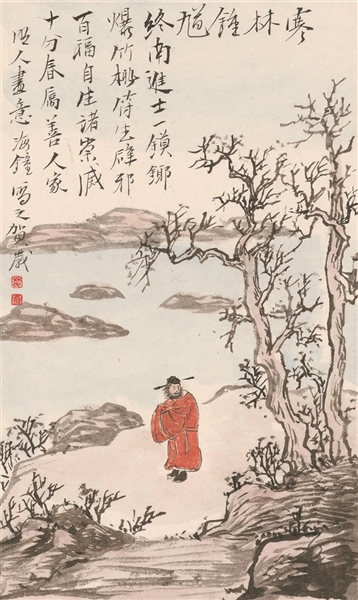 寒林鍾馗
終南進士一鏌鋣
爆竹桃符生辟邪
百福自生諸祟滅
十分春屬善人家
明人畫意海鐘寫之賀歲